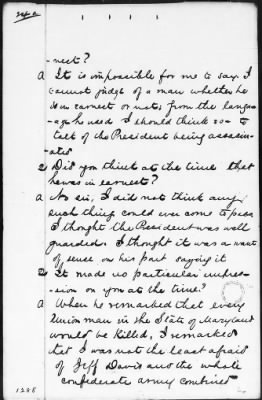 -nest?
A It is impossible for me to say. I
cannot judge of a man whether he
is in earnest or not, from the langu-
-age he used I should think so - to
talk of the President being assassin-
-ated
Q Did you think at the time that
he was in earnest?
A No sir, I did not think any
such thing could ever come to pass
I thought the President was well
guarded. I thought it was a want
of sense on his part saying it
Q It made no particular impres-
-sion on you at the time?
A When he remarked that every
Union man in the State of Maryland
would be killed, I remarked
that I was not the least afraid
of Jeff Davis and the whole
confederate army combined